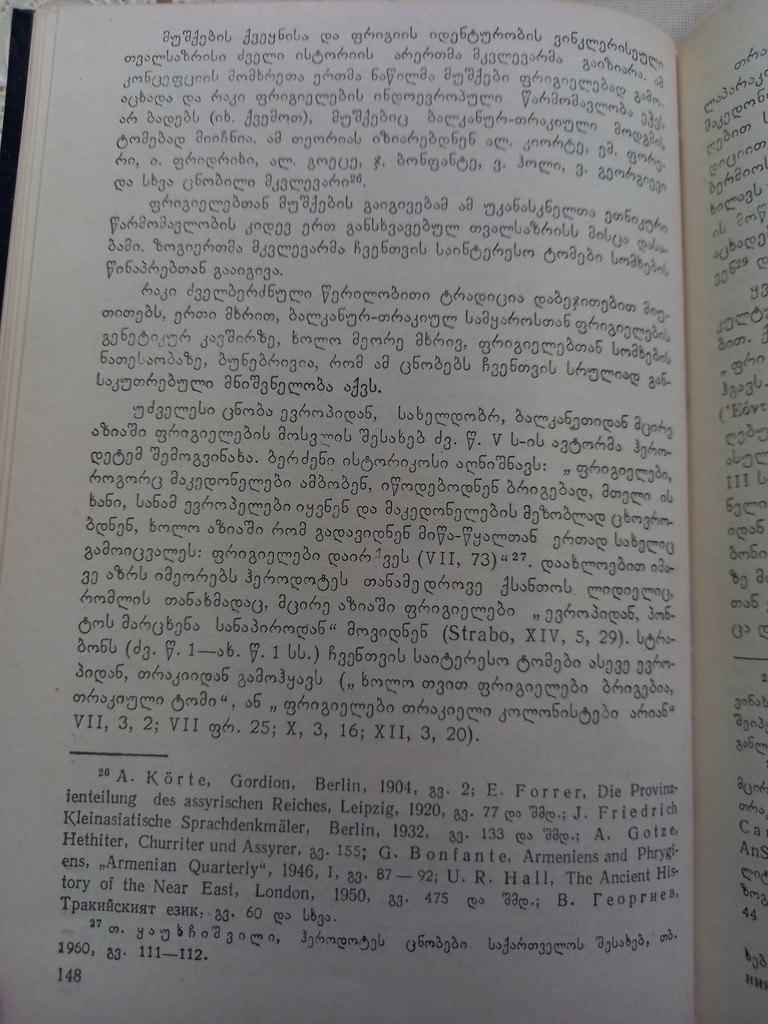 მუშქების ქვეყნისა და ფრიგიის იდენტურობის ვინკლერისეული
თვალსაზრისი ძველი ისტორიის არერთმა მკვლევარმა გაიზიარა. ამ
კონცეფციის მომხრეთა ერთმა ნაწილმა მუშქები ფრიგიელებად გამო-
აცხადა და რაკი ფრიგიელების ინდოევროპული წარმომავლობა ეჭვს
არ ბადებს (იხ. ქვემოთ), მუშქებიც ბალკანურ-თრაკიული მოდგმის
ტომებად მიიჩნია. ამ თეორიას იზიარებდნენ ალ. კიორტე, ემ. ფორე-
რი, ი. ფრიდრიხი, ალ. გოეცე, ჯ. ბონფანტე, ვ. ჰოლი, ვ. გეორგიევი
და სხვა ცნობილი მკვლევარი²⁶.
ფრიგიელებთან მუშქების გაიგივებამ ამ უკანასკნელთა ეთნიკური
წარმომავლობის კიდევ ერთ განსხვავებულ თვალსაზრისს მისცა დასა-
ბამი. ზოგიერთმა მკვლევარმა ჩვენთვის საინტერესო ტომები სომხების
წინაპრებთან გააიგივა.
რაკი ძველბერძნული წერილობითი ტრადიცია დაბეჯითებით მიუ-
თითებს, ერთი მხრით, ბალკანურ-თრაკიულ სამყაროსთან ფრიგიელების
გენეტიკურ კავშირზე, ხოლო მეორე მხრივ, ფრიგიელებთან სომხების
ნათესაობაზე, ბუნებრივია, რომ ამ ცნობებს ჩვენთვის სრულიად გან-
საკუთრებული მნიშვნელობა აქვს.
უძველესი ცნობა ევროპიდან, სახელდობრ, ბალკანეთიდან მცირე
აზიაში ფრიგიელების მოსვლის შესახებ ძვ. წ. V ს-ის ავტორმა ჰერო-
დეტემ შემოგვინახა. ბერძენი ისტორიკოსი აღნიშნავს: „ფრიგიელები,
როგორც მაკედონელები ამბობენ, იწოდებოდნენ ბრიგებად, მთელი ის
ხანი, სანამ ევროპელები იყვნენ და მაკედონელების მეზობლად ცხოვრო-
ბდნენ, ხოლო აზიაში რომ გადავიდნენ მიწა-წყალთან ერთად სახელიც
გამოიცვალეს: ფრიგიელები დაირქვეს (VII, 73)“²⁷. დაახლოებით იმა-
ვე აზრს იმეორებს ჰეროდოტეს თანამედროვე ქსანთოს ლიდიელიც,
რომლის თანახმადაც, მცირე აზიაში ფრიგიელები „ევროპიდან, პონ-
ტოს მარცხენა სანაპიროდან“ მოვიდნენ (Strabo, XIV, 5, 29). სტრა-
ბონს (ძვ. წ. 1—ახ. წ. 1 სს.) ჩვენთვის საიტერესო ტომები ასევე ევრო-
პიდან, თრაკიიდან გამოჰყავს („ხოლო თვით ფრიგიელები ბრიგებია,
თრაკიული ტომი“, ან „ფრიგიელები თრაკიელი კოლონისტები არიან“
VII, 3, 2; VII ფრ. 25; X, 3, 16; XII, 3, 20).
²⁶ A. Körte, Gordion, Berlin, 1904, გვ. 2; E. Forrer, Die Provinz-
ienteilung des assyrischen Reiches, Leipzig, 1920, გვ. 77 და შმდ.; J. Friedrich
Kleinasiatische Sprachdenkmäler, Berlin, 1932, გვ. 133 და შმდ.; A. Gotze,
Hethiter, Churriter und Assyrer, გვ. 155; G. Bonfante, Armeniens and Phrygi-
ens, „Armenian Quarterly“, 1946, 1, გვ. 87—92; U. R. Hall, The Ancient His-
tory of the Near East, London, 1950, გვ. 475 და შმდ.; В. Георгиев,
Тракийският език, გვ. 60 და სხვა.
²⁷ თ. ყაუხჩიშვილი, ჰეროდოტეს ცნობები საქართველოს შესახებ, თბ.
1960, გვ. 111—112.
148